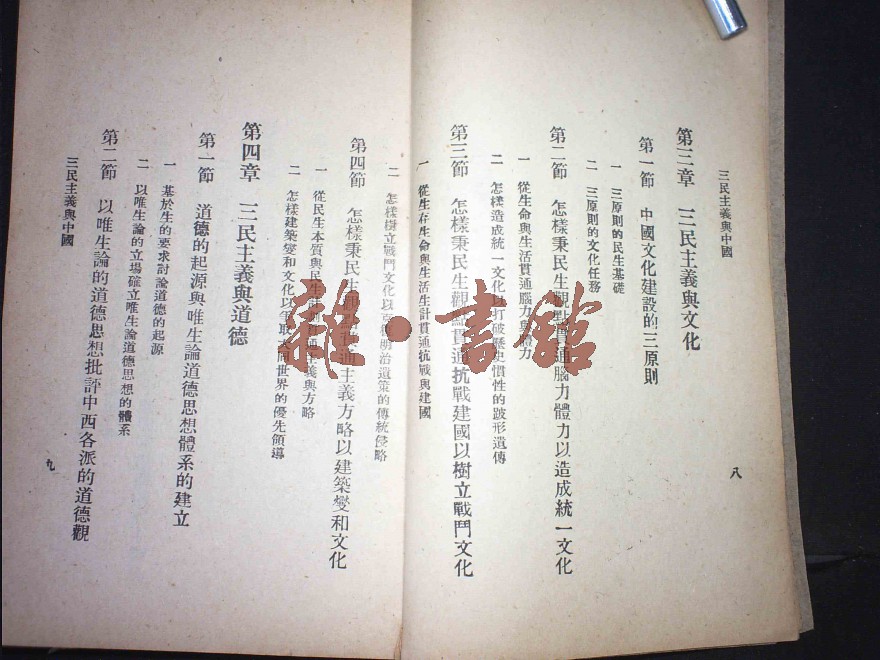 三民主義與中國
第三章　三民主義與文化
第一節　中國文化建設的三原則
一　三原則的民生基礎
二　三原則的文化任務
第二節　怎樣秉民生觀點貫通腦力體力以造成統一文化
一　從生命與生活貫通腦力與體力
二　怎樣造成統一文化以打破歷史慣性的跛形遺傳
第三節　怎樣秉民生觀點貫通抗戰建國以樹立戰鬥文化
一　從生存生命與生活生計貫通抗戰與建國
八
二　怎樣樹立戰鬥文化以明治遺策的傳統侵略
第四節　怎樣秉民生觀點主義方略以建築變和文化
一　從民生本質與民生主義與方略
二　怎樣建築變和文化以爭取世界的優先領導
第四章　三民主義與道德
第一節　道德的起源與唯生論道德思想體系的建立
一　基於生的要求討論道德的起源
二　以唯生論的立場確立唯生論道德思想的體系
第二節　以唯生論的道德思想批評中西各派的道德觀
三民主義與中國
九
雜·書館